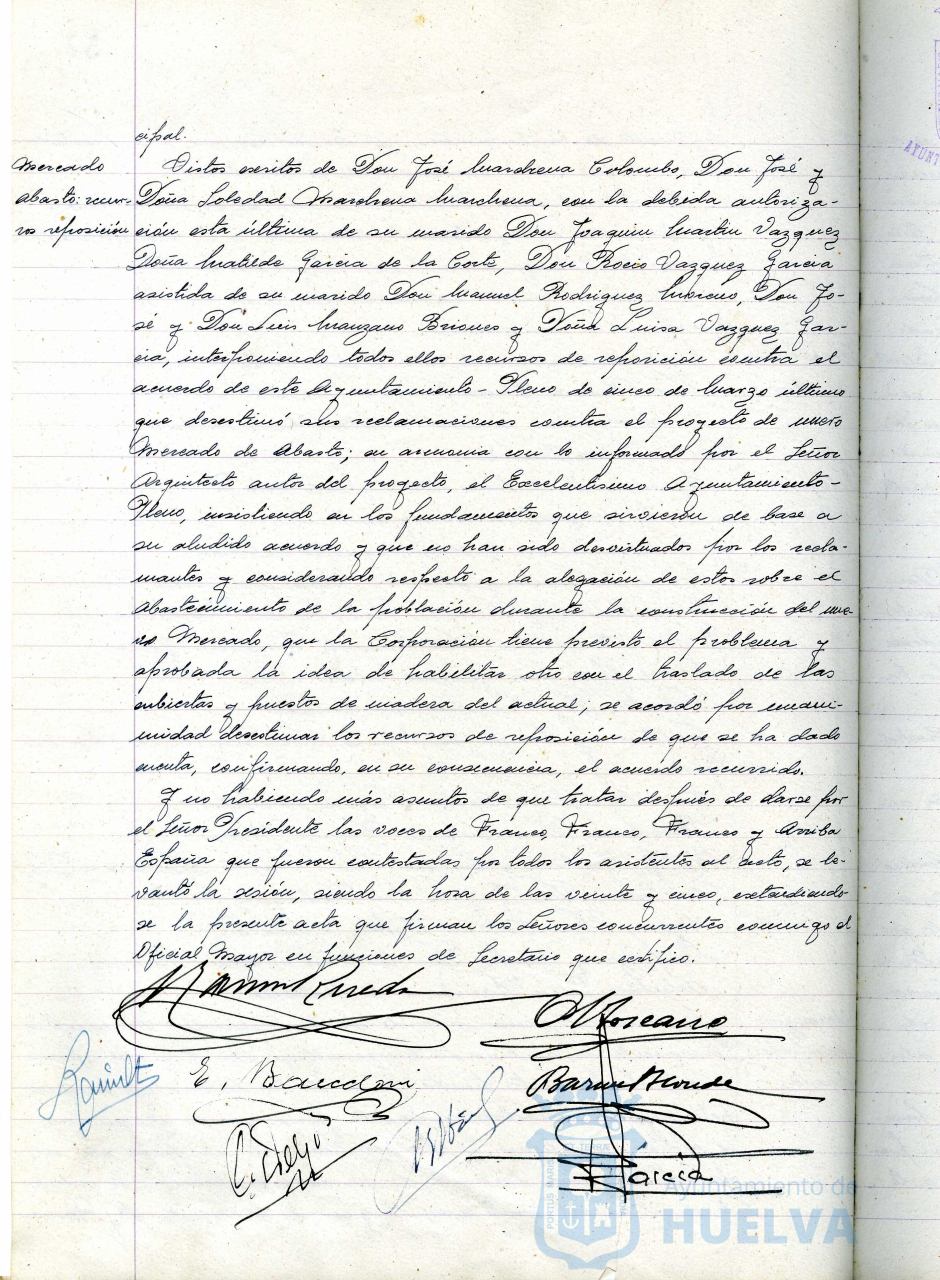 cipal.
Mercado
Abasto: recur-
sos reposición
Vistos escritos de Don José Marchena Colombo, Don José y
Doña Soledad Marchena Marchena, con la debida autoriza-
ción esta última de su marido Don Joaquin Martin Vazquez
Doña Matilde Garcia de la Corte, Don Rocio Vazquez Garcia
asistida de su marido Don Manuel Rodriguez Moreno, Don Jo-
sé y Don Luis Manzano Briones y Doña Luisa Vazquez Gar-
cia, interponiendo todos ellos recursos de reposición contra el
acuerdo de este Ayuntamiento-Pleno de cinco de Marzo último
que desestimó sus reclamaciones contra el proyecto de nuevo
Mercado de Abasto; en armonia con lo informado por el Señor
Arquitecto autor del proyecto, el Excelentisimo Ayuntamiento-
Pleno, insistiendo en los fundamentos que sirvieron de base a
su aludido acuerdo y que no han sido desvirtuados por los recla-
mantes y considerando respecto a la alegación de estos sobre el
abastecimiento de la población durante la construcción del nue-
vo Mercado, que la Corporación tiene previsto el problema y
aprobada la idea de habilitar otro con el traslado de las
cubiertas y puestos de madera del actual; se acordó por unani-
midad desestimar los recursos de reposición de que se ha dado
cuenta, confirmando, en su consecuencia, el acuerdo recurrido.
Y no habiendo más asuntos de que tratar después de darse por
el Señor Presidente las voces de Franco, Franco, Franco y Arriba
España que fueron contestadas por todos los asistentes al acto, se le-
vantó la sesión, siendo la hora de las veinte y cinco, extendiendo-
se la presente acta que firman los Señores concurrentes conmigo el
Oficial Mayor en funciones de Secretario que certifico.
E.
García
Ayuntamiento de
HUELVA